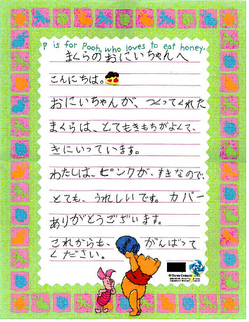 p is for Pooh, who loves to eat honey.
まくらのおにいちゃんへ
こんにちは。
おにいちゃんが、つくってくれた
まくらは、とてもきもちがよくて、
きにいっています。
わたしは、ピンクが、すきなので、
とても、うれしいです。カバー
ありがとうございます。
これからも、がんばって
ください。